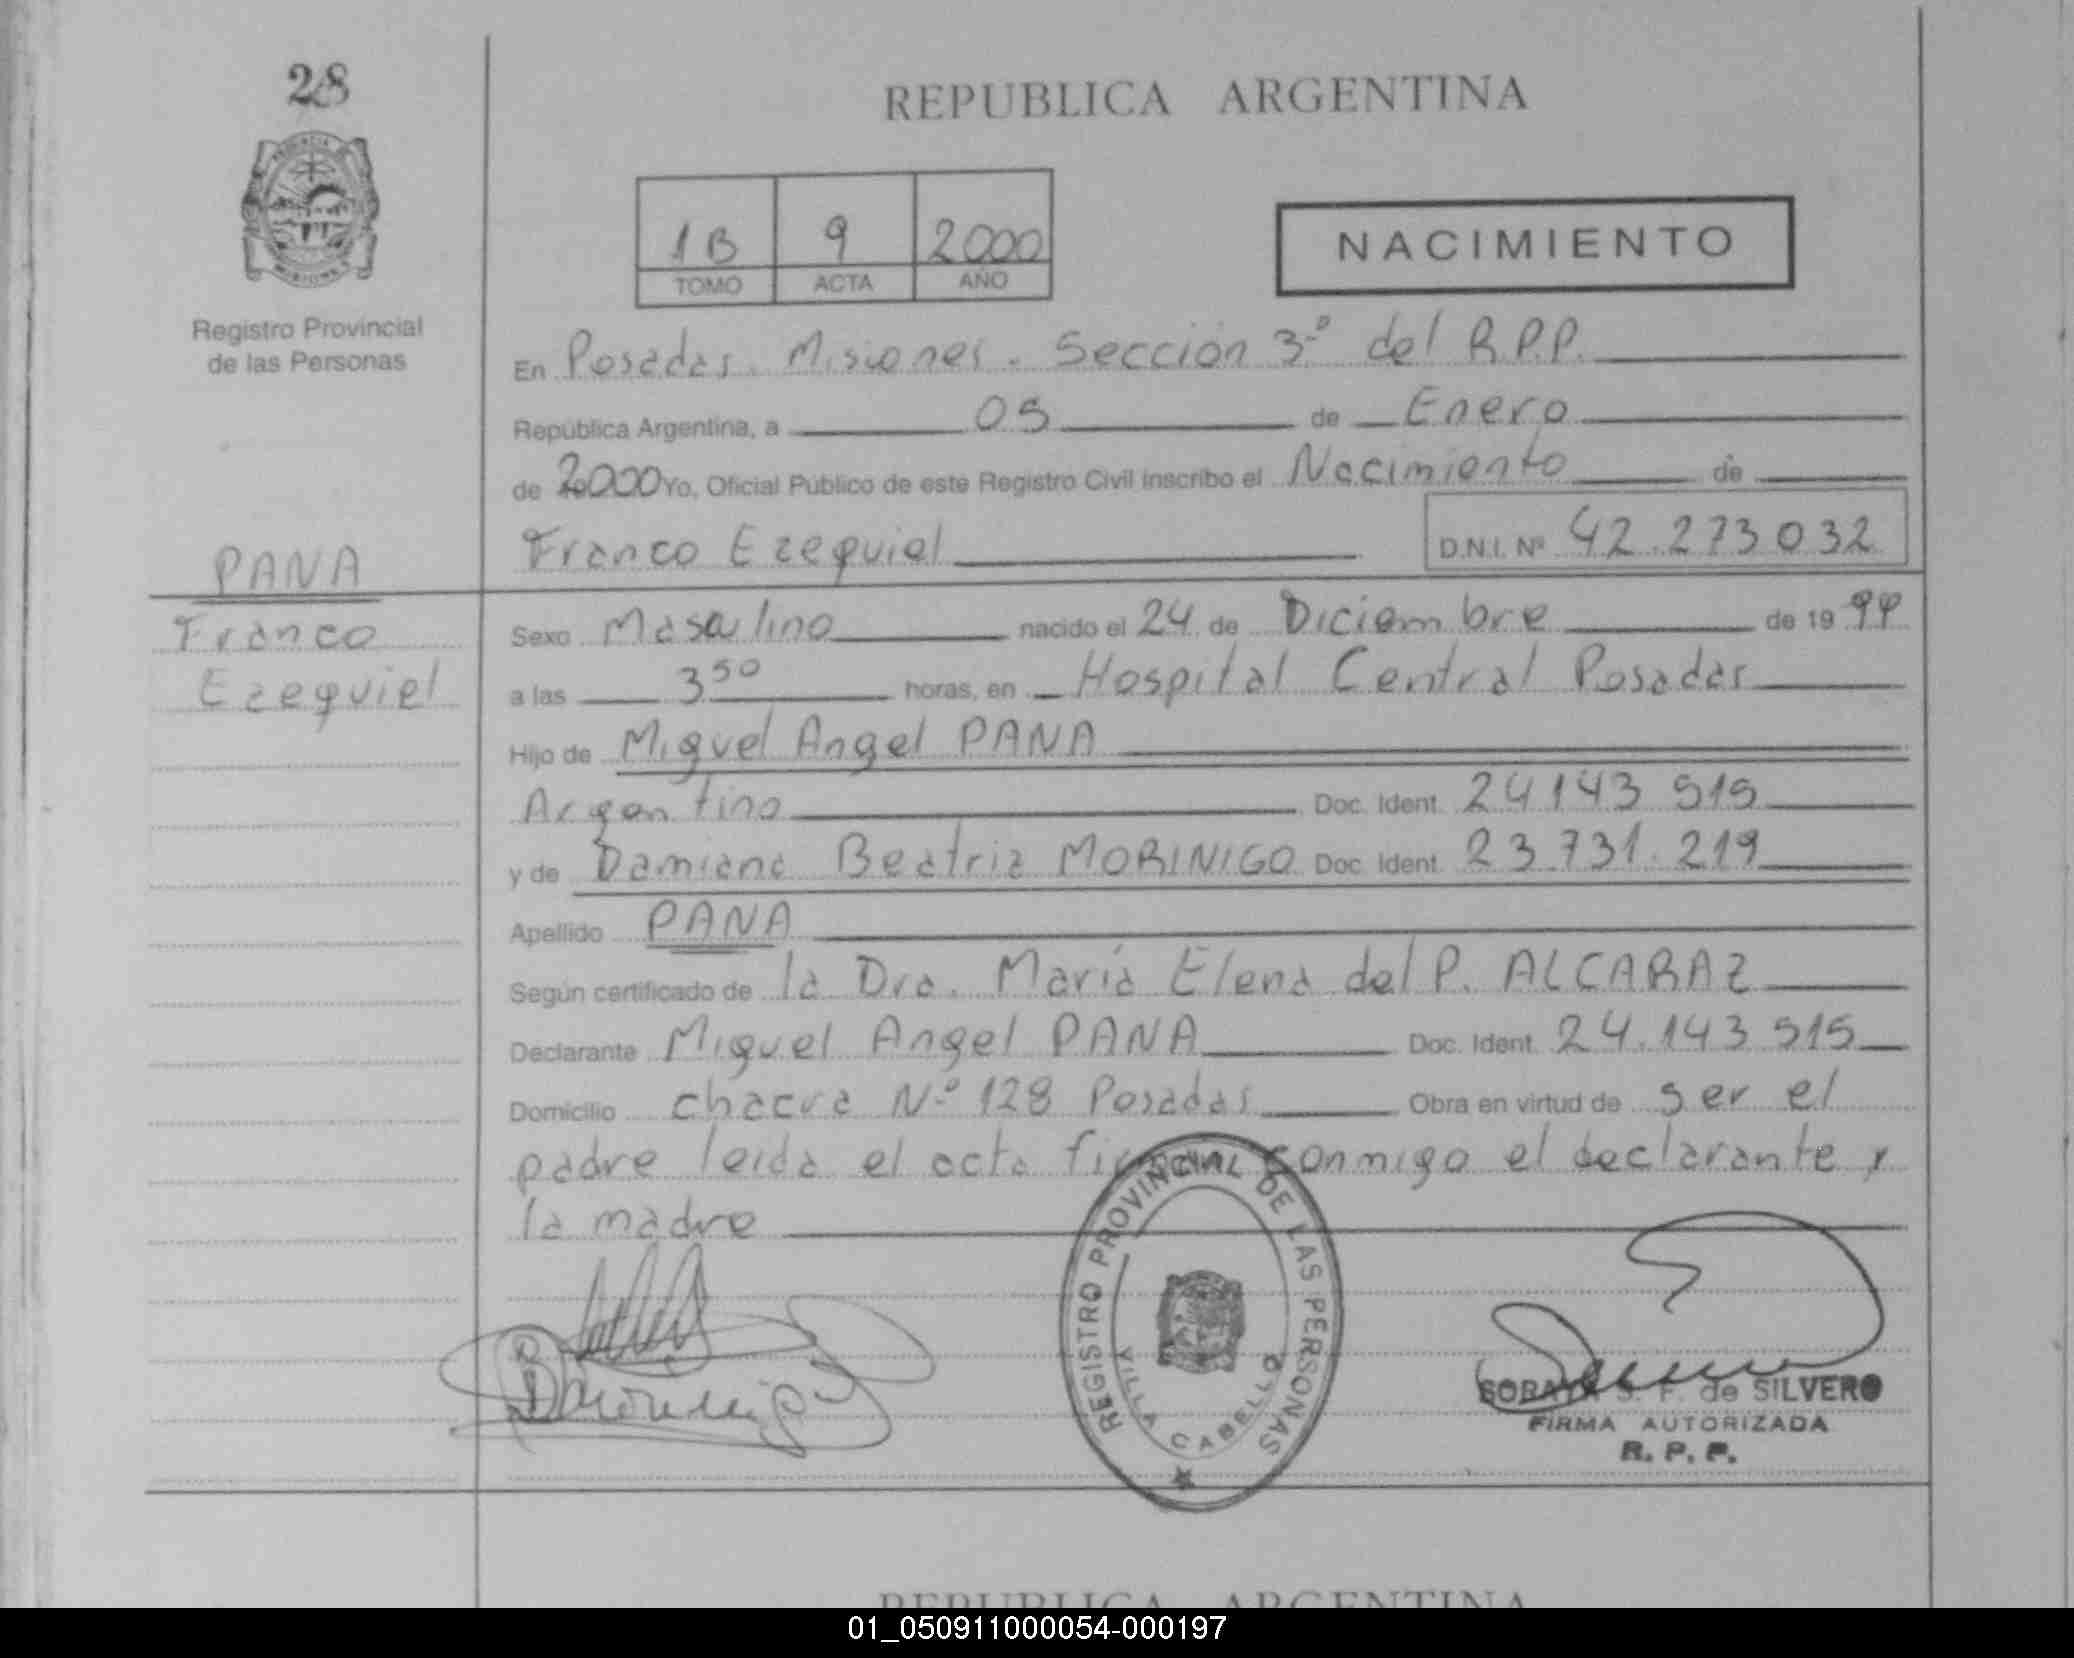 28
REPUBLICA ARGENTINA
1B 9 2000
TOMO ACTA AÑO
NACIMIENTO
Registro Provincial
de las Personas
En Posadas. Misiones. Sección 3º del R.P.P.
República Argentina, a 05 de Enero
de 2000 Yo, Oficial Público de este Registro Civil inscribo el Nacimiento de
Franco Ezequiel D.N.I. Nº 42.273032
PANA
Franco
Ezequiel
Sexo Masculino nacido el 24 de Diciembre de 1999
a las 3 50 horas, en Hospital Central Posadas
Hijo de Miguel Angel PANA
Argentino Doc. Ident. 24143 515
y de Damiana Beatriz MORINIGO Doc. Ident. 23.731.219
Apellido PANA
Según certificado de la Dra. María Elena del P. ALCARAZ
Declarante Miguel Angel PANA Doc. Ident. 24.143 515
Domicilio chacra Nº 128 Posadas Obra en virtud de ser el
padre leida el acta firman conmigo el declarante y
la madre
REGISTRO PROVINCIAL DE LAS PERSONAS
VILLA CABELLO
SORAYA S. F. de SILVERO
FIRMA AUTORIZADA
R. P. P.
REPUBLICA ARGENTINA
01_050911000054-000197